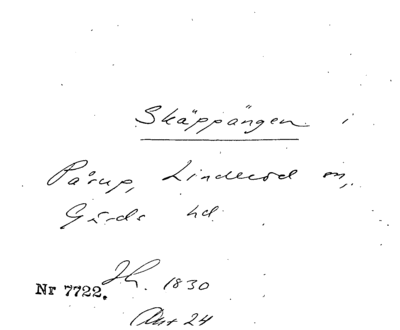 Skäppången i
Pårup, Linderöd sn,
Gärds hd
Nr 7722. Jh. 1830
Akt 24